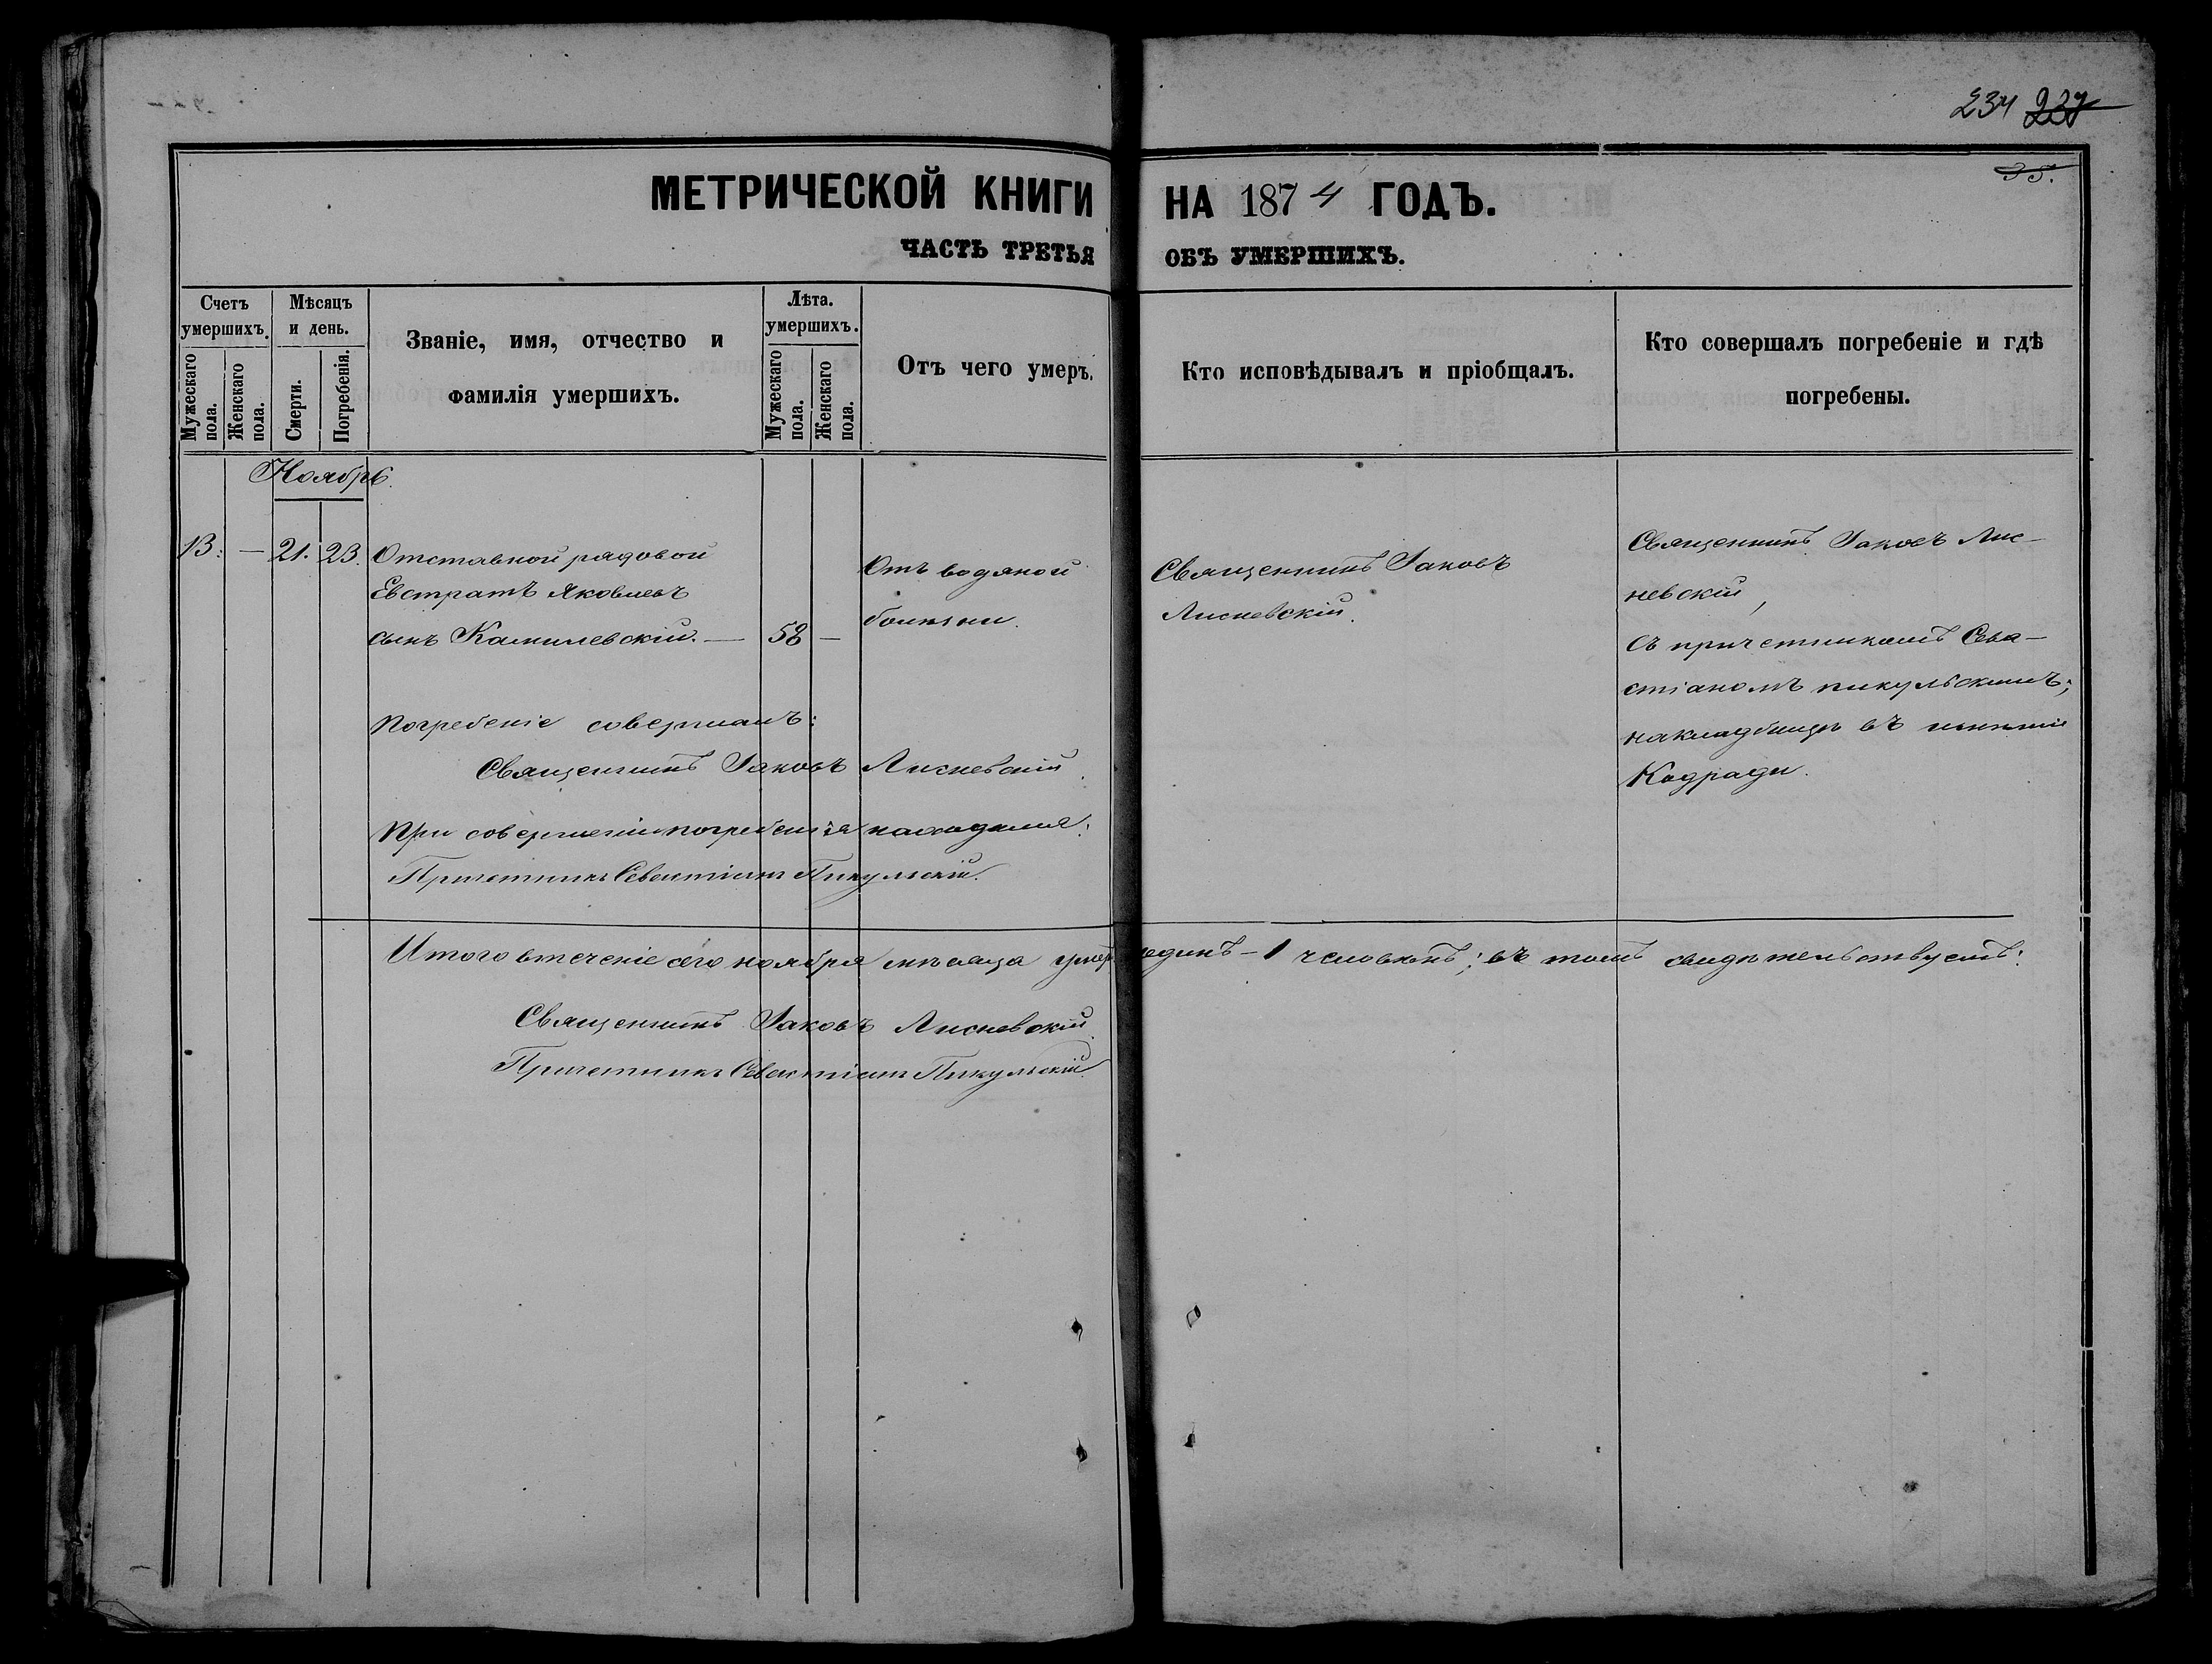 234 237
35.
МЕТРИЧЕСКОЙ КНИГИ НА 1874 ГОДЪ.
ЧАСТЬ ТРЕТЬЯ ОБЪ УМЕРШИХЪ.
Счетъ умершихъ.
Мужескаго пола.
Женскаго пола.
Мѣсяцъ и день.
Смерти.
Погребенія.
Званіе, имя, отчество и
фамилія умершихъ.
Лѣта. умершихъ.
Мужескаго пола.
Женскаго пола.
Отъ чего умеръ.
Кто исповѣдывалъ и пріобщалъ.
Кто совершалъ погребеніе и гдѣ
погребены.
Ноябрь.
13. — 21. 23. Отставной рядовой
Евстратъ Яковлевъ
сынъ Камилевскій. — 58 —
Отъ водяной
болѣзни.
Священникъ Іаковъ
Лисневскій.
Священникъ Іаковъ Лис-
невскій,
съ причетникомъ Сева-
стіаномъ Пикульскимъ;
на кладбищѣ въ имѣніи
Кадради.
Погребеніе совершалъ:
Священникъ Іаковъ Лисневскій.
При совершеніи погребенія находился:
Причетникъ Севастіанъ Пикульскій.
Итого въ теченіе сего ноября мѣсяца умеръ одинъ — 1 человѣкъ; въ томъ свидѣтельствуемъ:
Священникъ Іаковъ Лисневскій.
Причетникъ Севастіанъ Пикульскій.